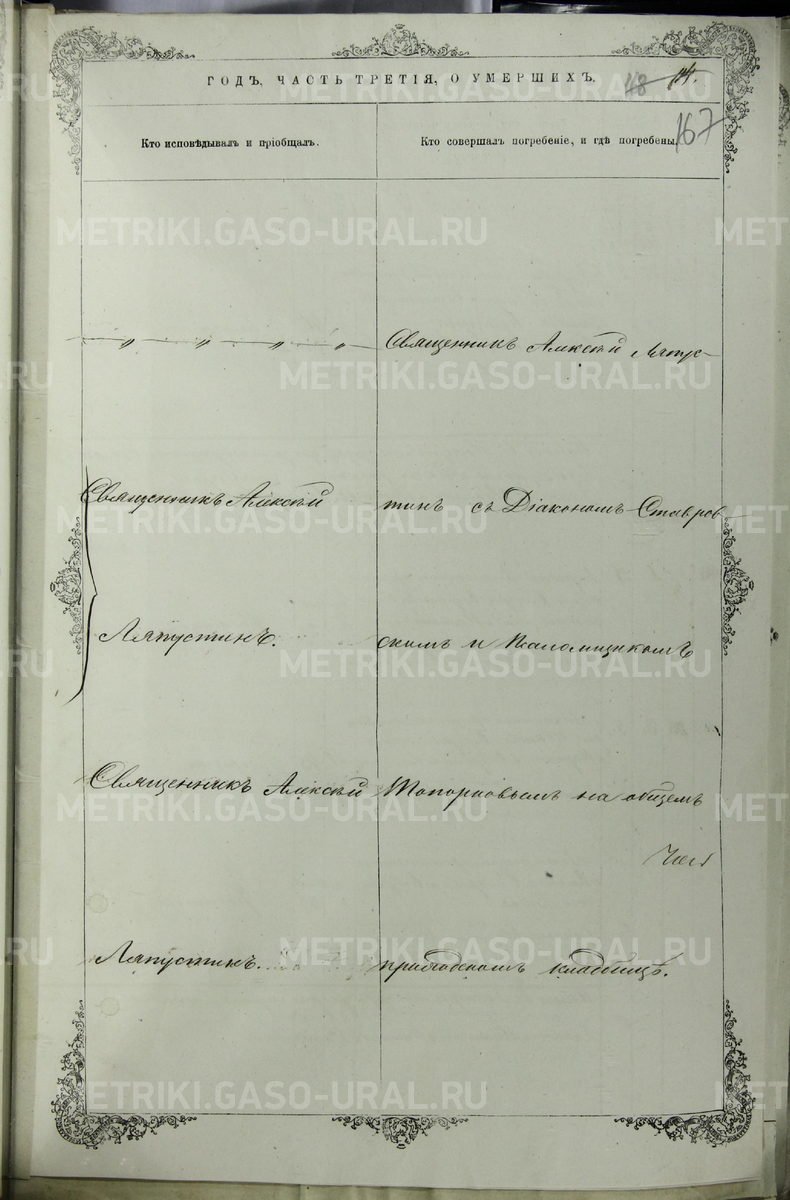 ГОДЪ, ЧАСТЬ ТРЕТІЯ, О УМЕРШИХЪ.
167
Кто исповѣдывалъ и пріобщалъ.
Кто совершалъ погребеніе, и гдѣ погребены.
Священникъ Алексѣй Ляпус-
Священникъ Алексѣй
тинъ съ Діакономъ Ставров
Ляпустинъ.
скимъ и Псаломщикомъ
Священникъ Алексѣй
Топорковымъ на общемъ
Ляпустинъ.
приходскомъ кладбищѣ.
METRIKI.GASO-URAL.RU